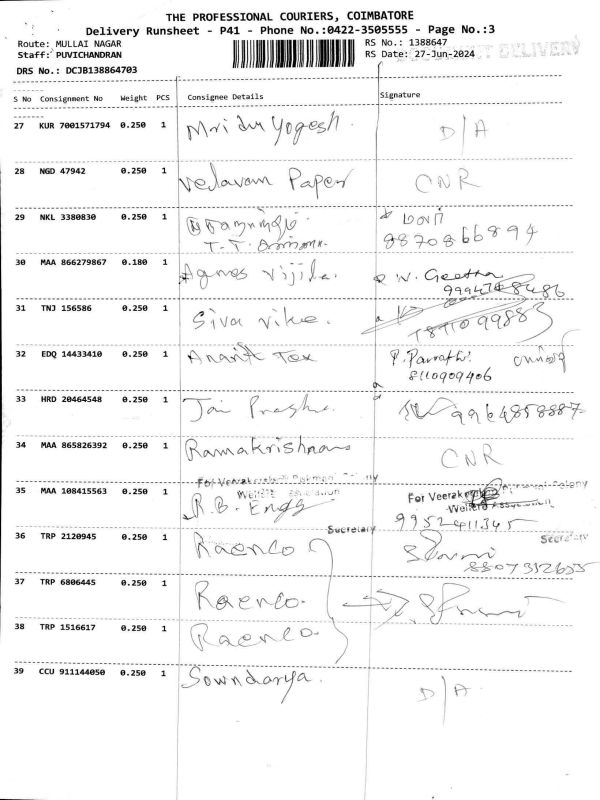 THE PROFESSIONAL COURIERS, COIMBATORE
Delivery Runsheet - P41 - Phone No.:0422-3505555 - Page No.:3
Route: MULLAI NAGAR RS No.: 1388647
Staff: PUVICHANDRAN RS Date: 27-Jun-2024 DELIVERY
DRS No.: DCJB138864703
S No Consignment No Weight PCS Consignee Details Signature
27 KUR 7001571794 0.250 1 Mridu Yogesh. D/A
28 NGD 47942 0.250 1 Velavam Paper CNR
29 NKL 3380830 0.250 1
8870866894
30 MAA 866279867 0.180 1 Agnes Vijila. Geetha
31 TNJ 156586 0.250 1 Siva
32 EDQ 14433410 0.250 1 Anant Tex P.
8110909406
33 HRD 20464548 0.250 1 Jai 9964858887
34 MAA 865826392 0.250 1 Ramakrishnan CNR
35 MAA 108415563 0.250 1 R.B. Engg For Veerake
Welfare Association
9952411345
Secretary
36 TRP 2120945 0.250 1 Raenco
8807312655
37 TRP 6806445 0.250 1 Raenco.
38 TRP 1516617 0.250 1 Raenco.
39 CCU 911144050 0.250 1 Sowndarya. D/A